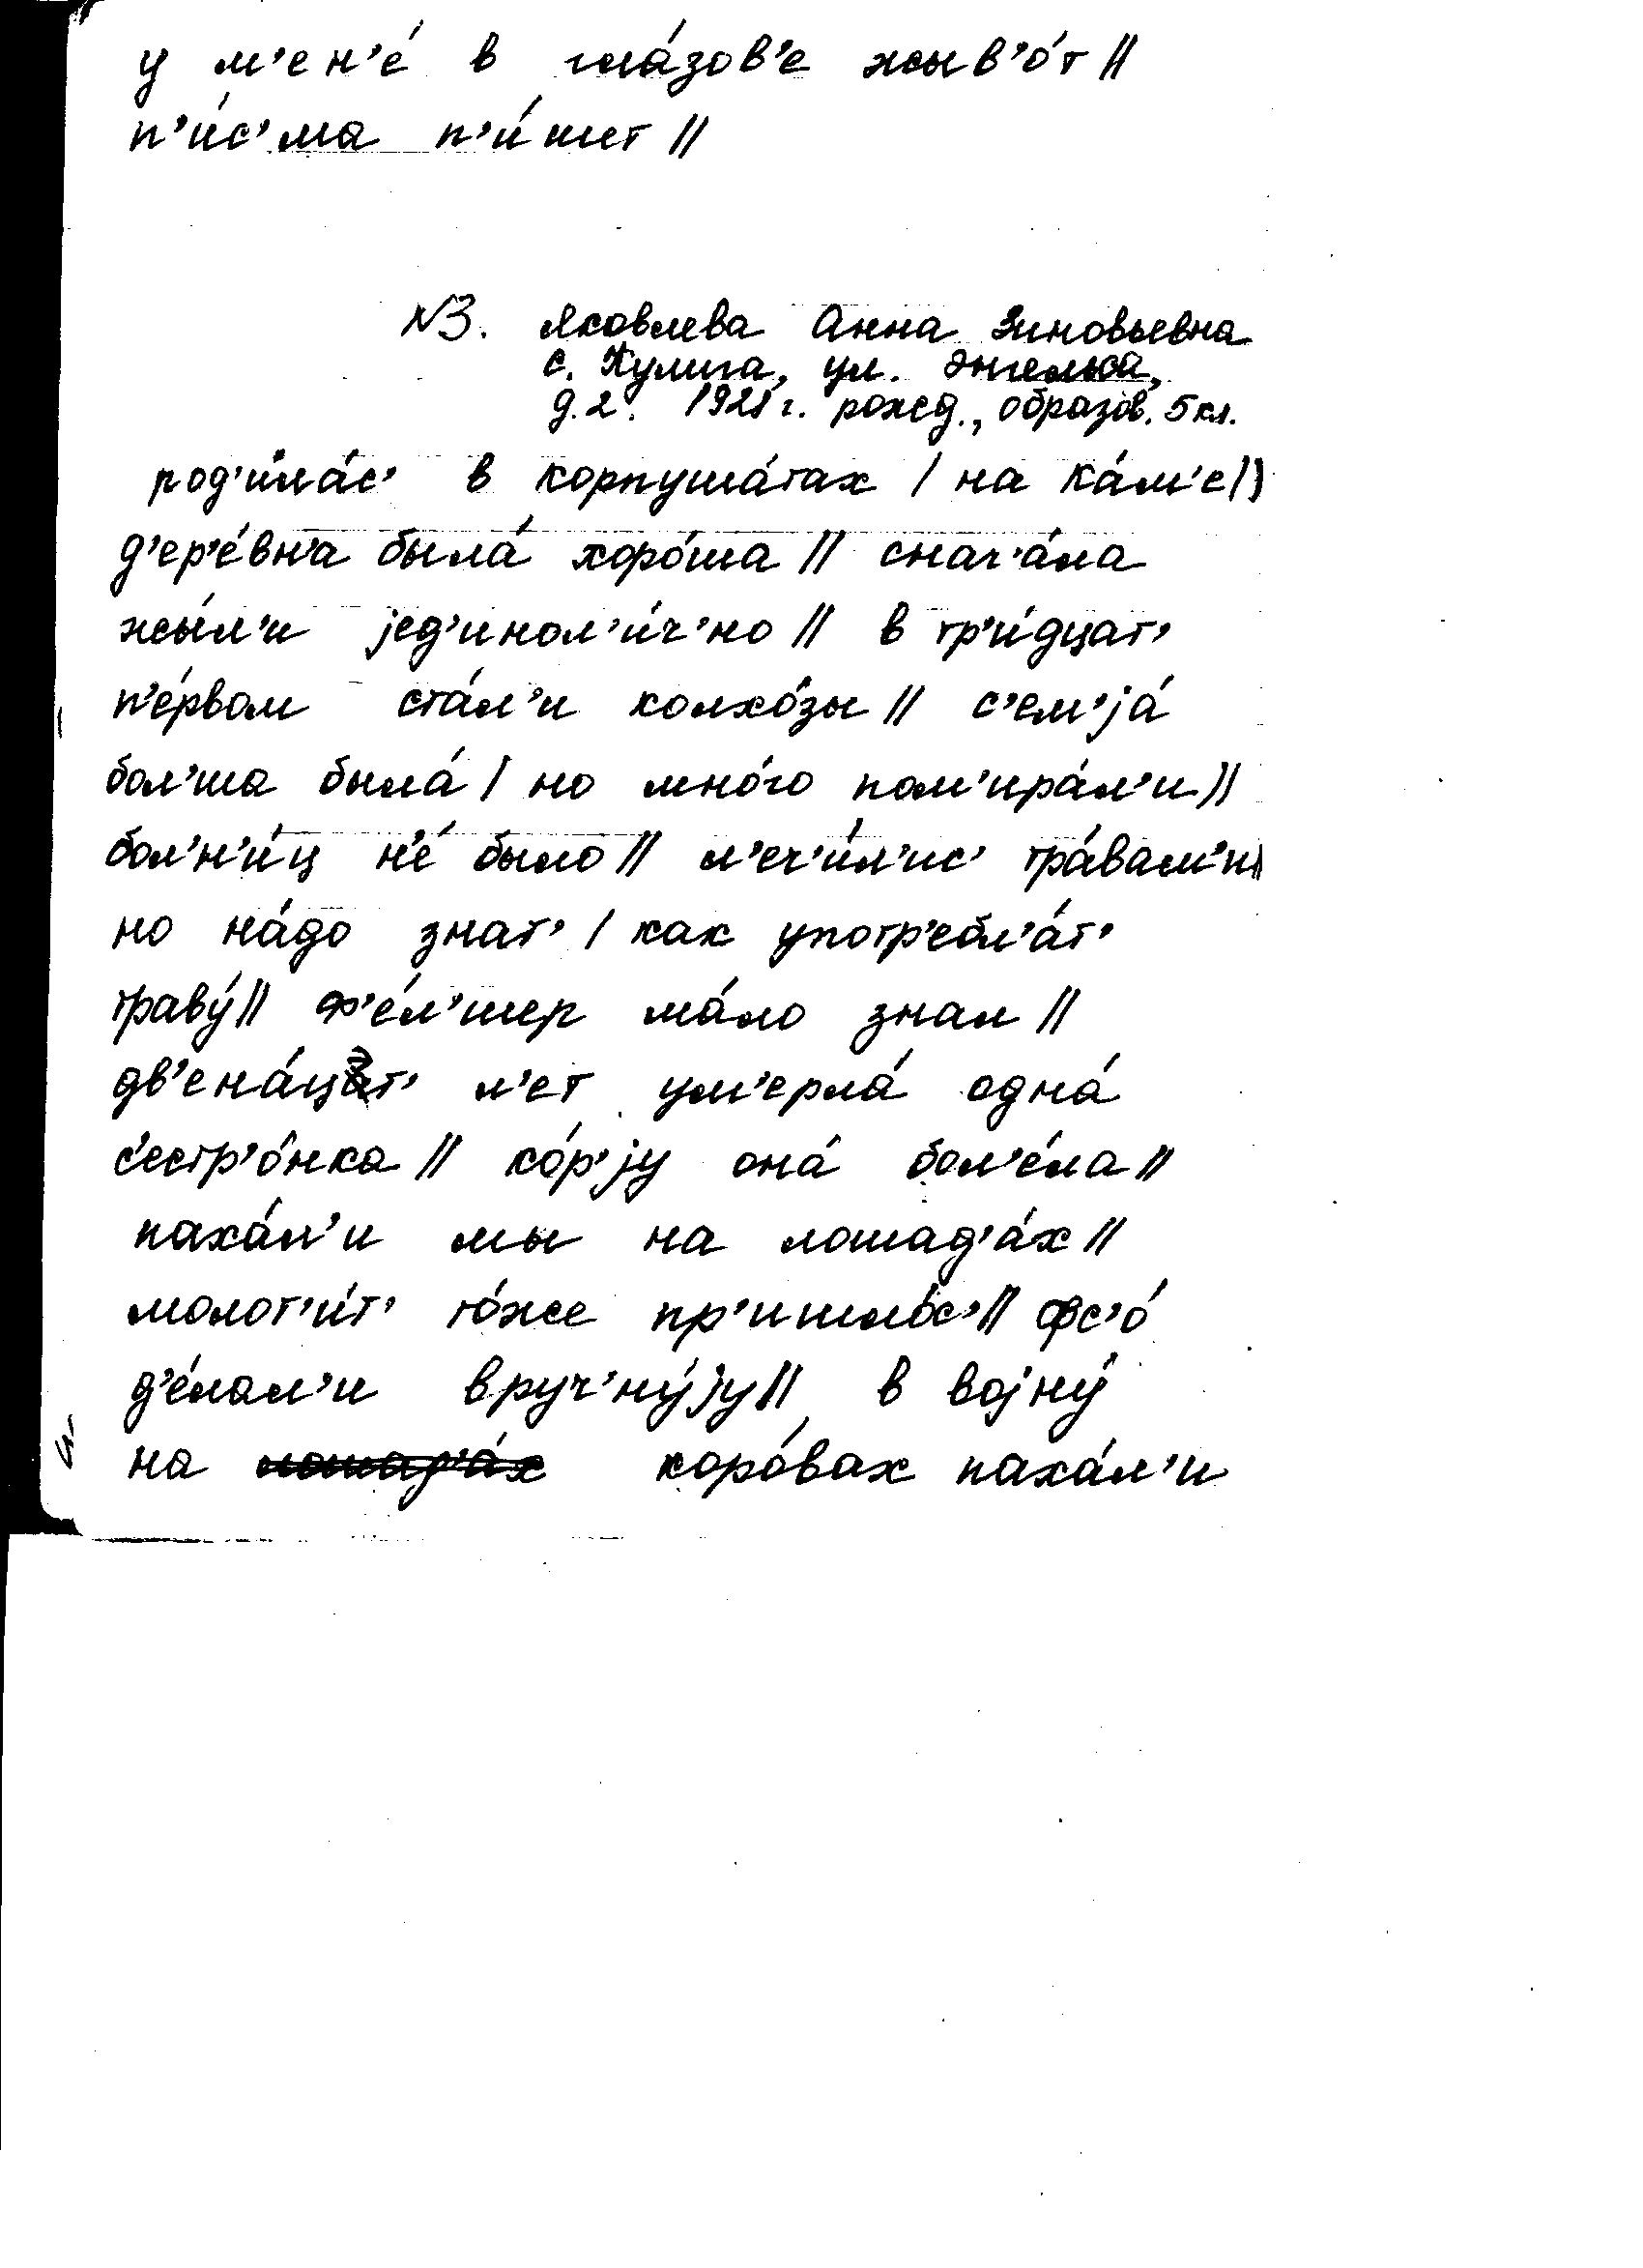 у м'ен'е́ в гла́зов'е жыв'о́т //
п'и́с'ма п'и́шет //
№3. Яковлева Анна Зиновьевна
с. Кулига, ул. Энгельса,
д.2. 1921 г. рожд., образов. 5 кл.
род'ила́с' в корпуша́тах / на ка́м'е //
д'ер'е́вн'а была́ хоро́ша // снач'а́ла
жы́л'и jед'инол'и́ч'но // в тр'и́дцат'
п'е́рвом ста́л'и колхо́зы // с'ем'jа́
бол'ша была́ / но мно́го пом'ира́л'и //
бол'н'и́ц н'е́ было // л'еч'и́л'ис' тра́вам'и //
но на́до знат' / как употр'ебл'а́т'
траву́ // ф'е́л'шер ма́ло знал //
дв'ена́цат' л'ет ум'ерла́ одна́
с'естр'о́нка // ко́р'jу она́ бол'е́ла //
паха́л'и мы на лошад'а́х //
молот'и́т' то́же пр'ишло́с' // фс'о́
д'е́лал'и вруч'ну́jу // в воjну́
на лошад'а́х коро́вах паха́л'и